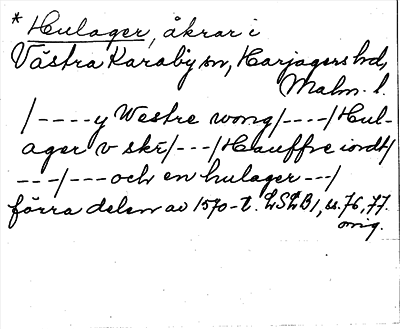 * Hulager, åkrar i
Västra Karaby sn, Harjagers hd,
Malm. l.
/----y Westre wong/----/Hul-
ager v ské/---/Hauffre iordt/
---/---och en hulager---/
förra delen av 1570-t. LSLB1, s. 76, 77.
orig.